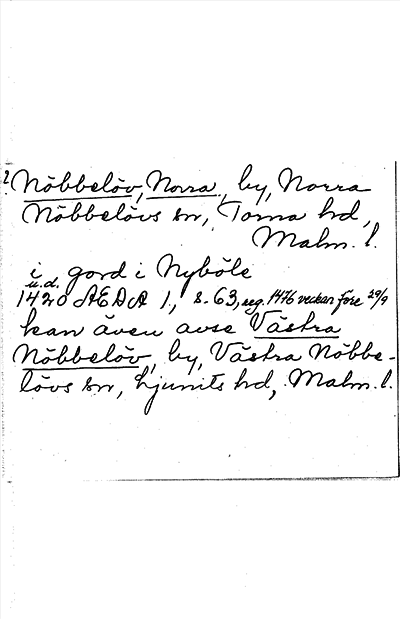 2 Nöbbelöv, Norra, by, Norra
Nöbbelövs sn, Torna hd,
Malm. l.
i gord i Nyböle
u.d.
1420 AEDA 1, s. 63, reg. 1476 veckan före 29/9
kan även avse Västra
Nöbbelöv, by, Västra Nöbbe-
lövs sn, Ljunits hd, Malm. l.